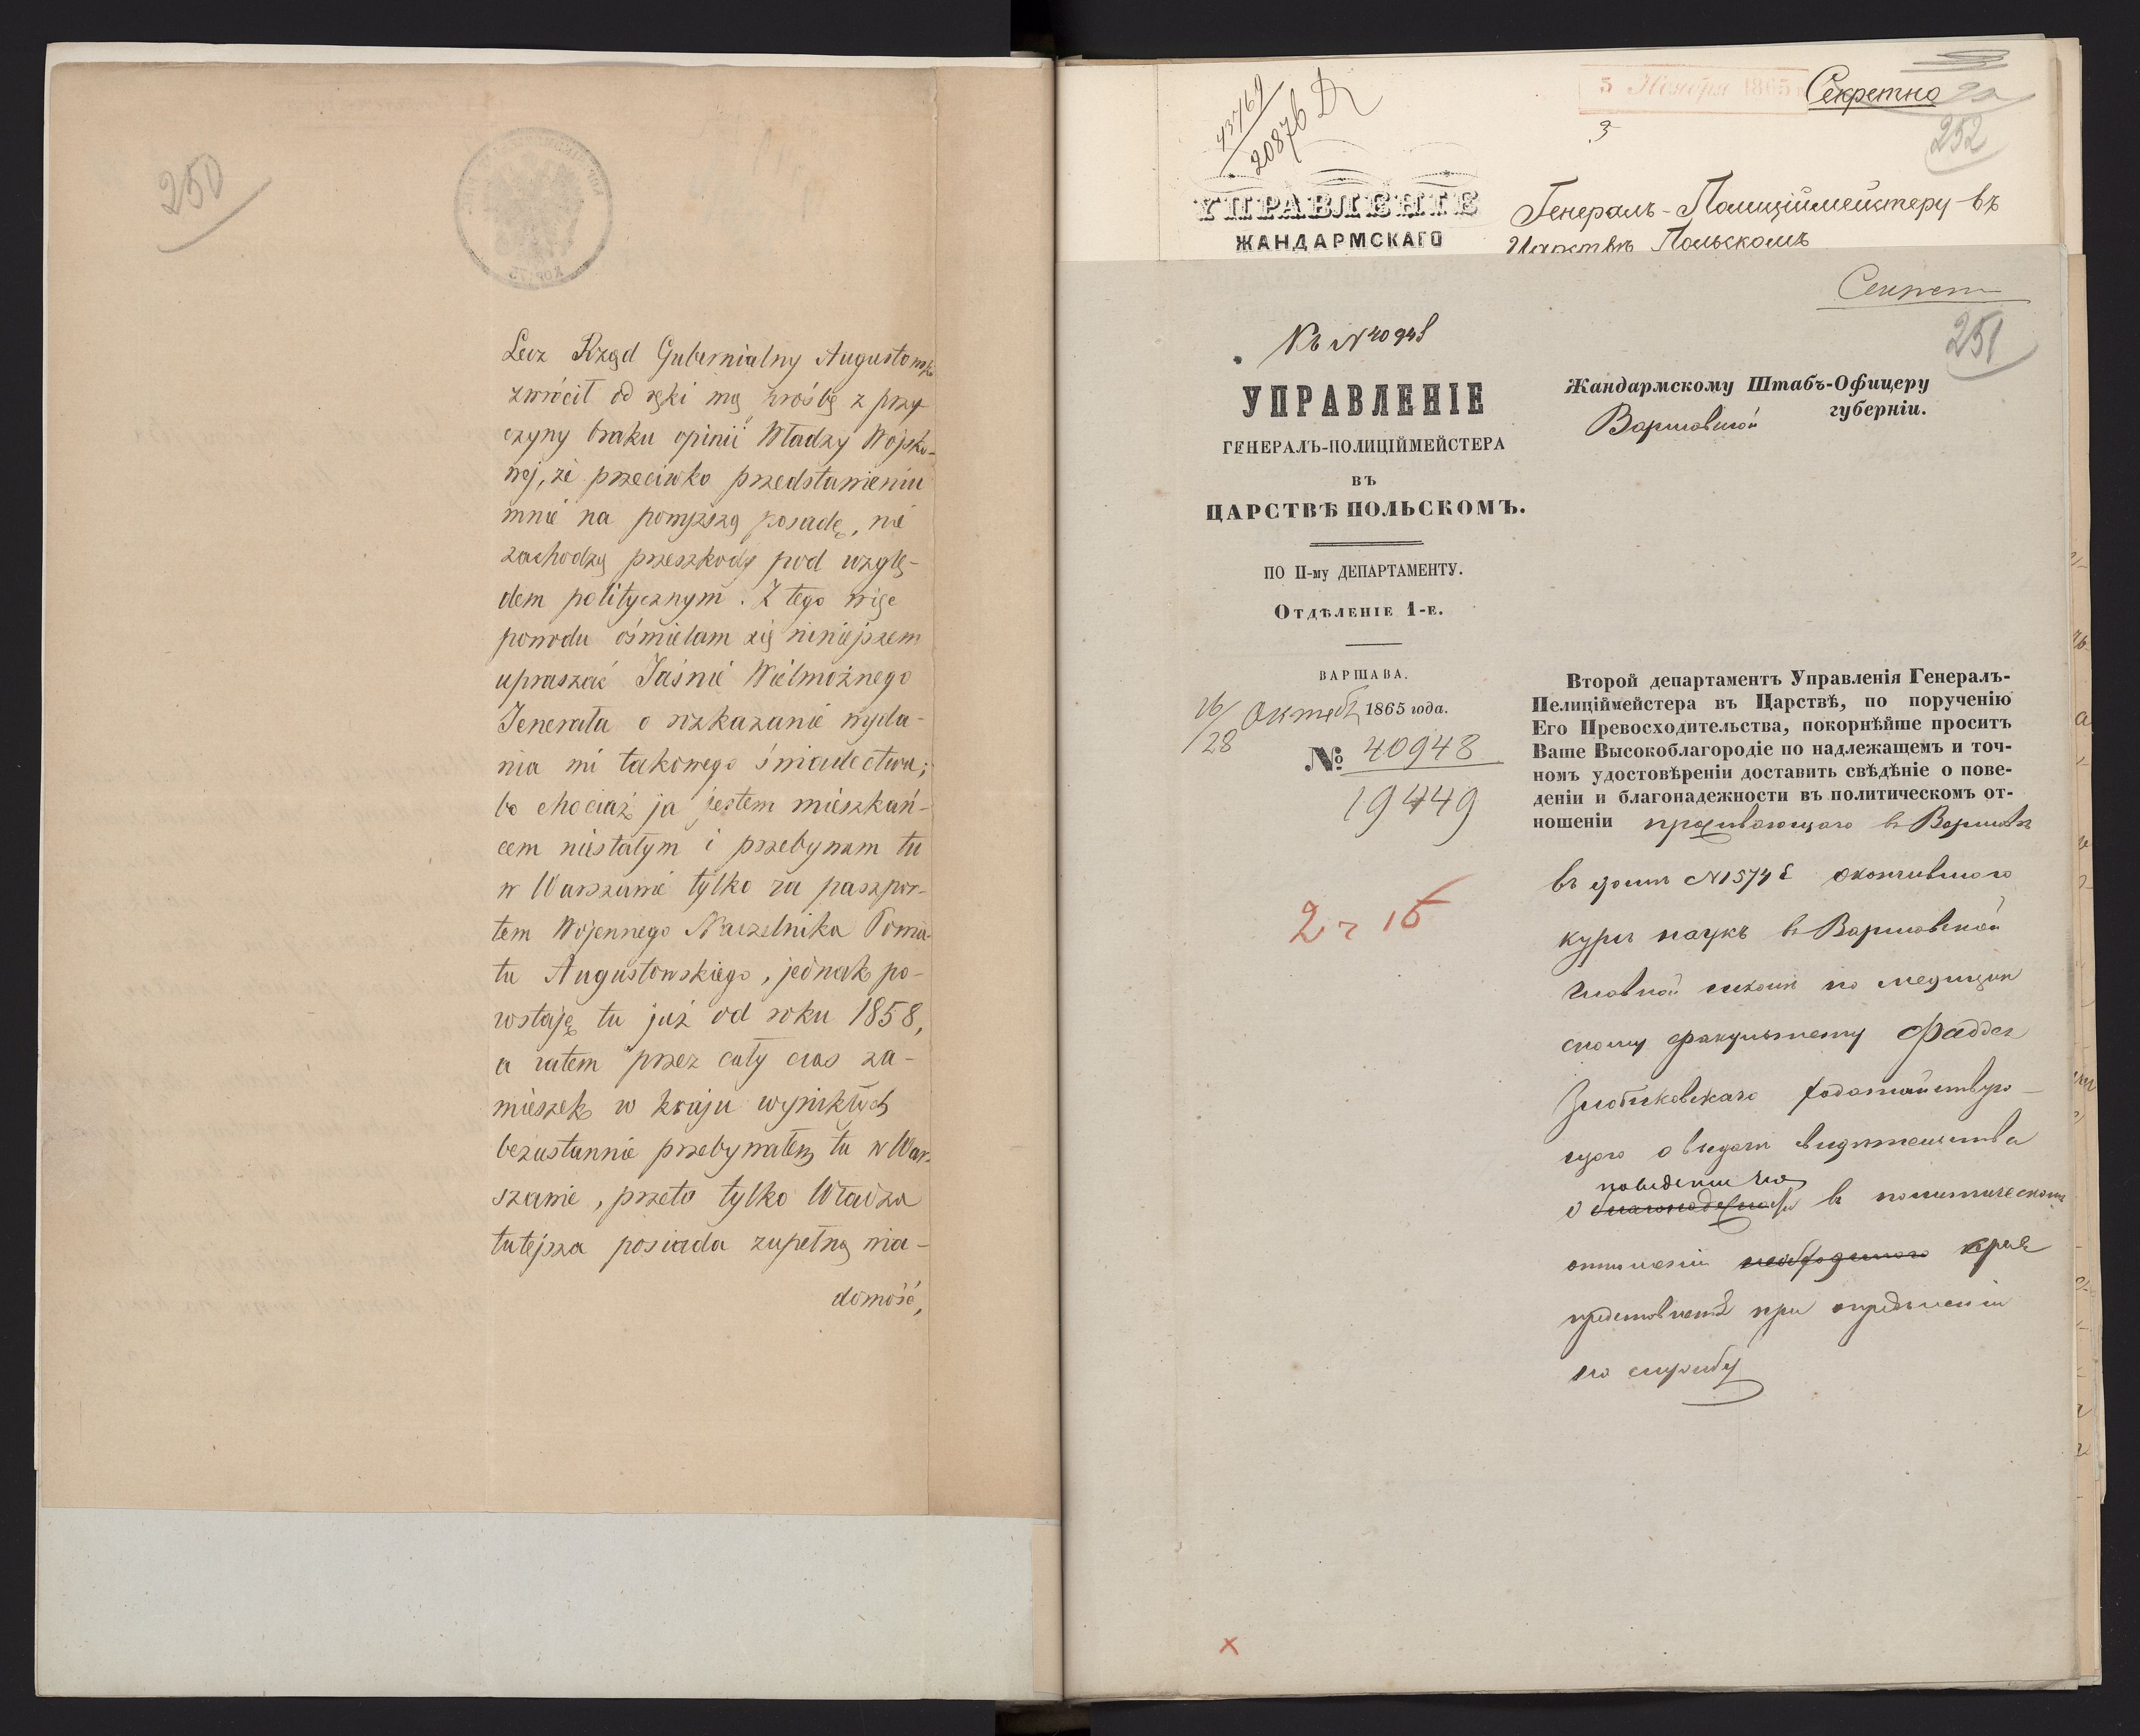 250
Lecz Rząd Gubernialny Augustowski
zwrócił od ręki mą prośbę z przy-
czyny braku opinii Władzy Wojsko-
wej, że przeciwko przedstawieniu
mnie na powyższą posadę, nie
zachodzą przeszkody pod wzglę-
dem politycznym. Z tego więc
powodu ośmielam się niniejszem
upraszać Jaśnie Wielmożnego
Jenerała o rozkazanie wyda-
nia mi takowego świadectwa;
bo chociaż ja jestem mieszkań-
cem niestałym i przebywam tu
w Warszawie tylko za paszpor-
tem Wojennego Naczelnika Powia-
tu Augustowskiego, jednak po-
zostaję tu już od roku 1858,
a zatem przez cały czas za-
mieszek w kraju wynikłych
bezustannie przebywałem tu w War-
szawie, przeto tylko Władza
tutejsza posiada zupełną wia-
domość,
43769
20876
5 Ноября 1865
Секретно
252
УПРАВЛЕНІЕ
ЖАНДАРМСКАГО
Генералъ-Полиціймейстеру въ
Царствѣ Польскомъ
Секрет
251
Къ N 40948
УПРАВЛЕНІЕ
ГЕНЕРАЛЪ-ПОЛИЦІЙМЕЙСТЕРА
ВЪ
ЦАРСТВѢ ПОЛЬСКОМЪ.
ПО II-му ДЕПАРТАМЕНТУ.
Отдѣленіе 1-е.
ВАРШАВА.
16/28 Октяб 1865 года.
№ 40948
19449
2 ч 15
Жандармскому Штабъ-Офицеру
Варшавской губерніи.
Второй департаментъ Управленія Генералъ-
Пелиціймейстера въ Царствѣ, по порученію
Его Превосходительства, покорнѣйше проситъ
Ваше Высокоблагородіе по надлежащемъ и точ-
номъ удостовѣреніи доставить свѣдѣніе о пове-
деніи и благонадежности въ политическомъ от-
ношеніи проживающаго въ Варшавѣ
въ домѣ N 1574 Е окончившаго
курсъ наукъ въ Варшавской
Главной школѣ по медицин
скому факультету Фаддея
ходатайствую-
щаго о выдачѣ свидѣтельства
поведеніи его
о благонадежности въ политическомъ
отношеніи необходимого для
представленія при опредѣленіи
на службу